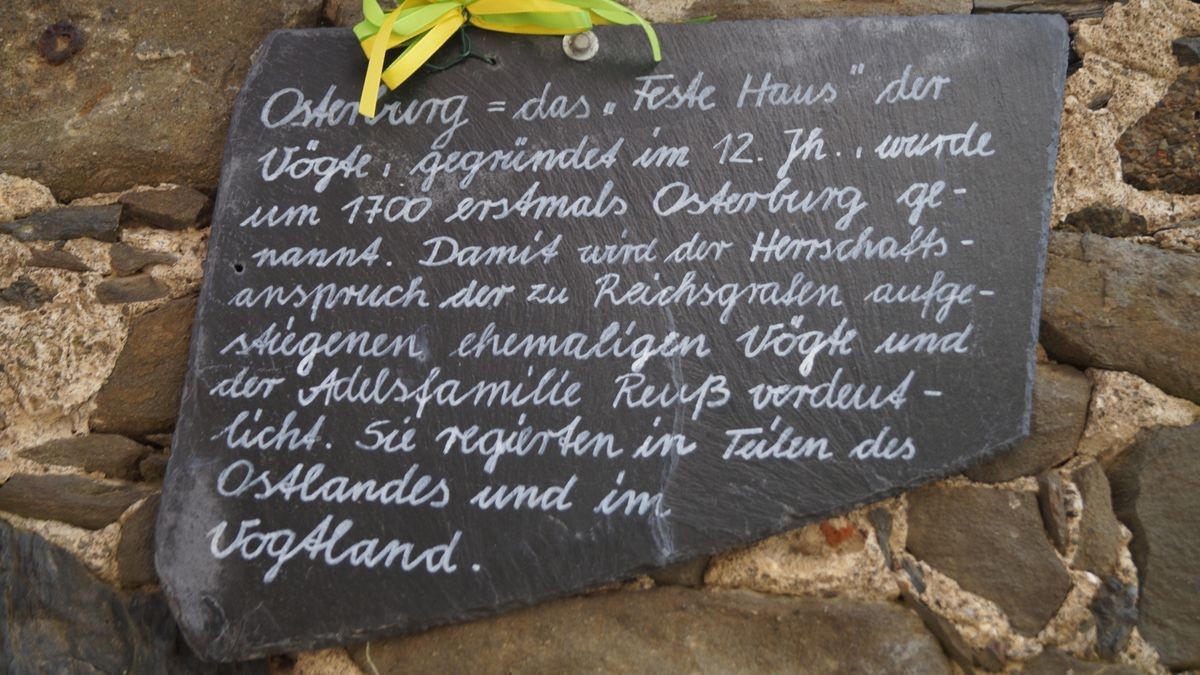 Osterburg = das „Feste Haus" der
Vögte, gegründet im 12. Jh., wurde
um 1700 erstmals Osterburg ge-
nannt. Damit wird der Herrschafts-
anspruch der zu Reichsgrafen aufge-
stiegenen ehemaligen Vögte und
der Adelsfamilie Reuß verdeut-
licht. Sie regierten in Teilen des
Ostlandes und im
Vogtland.